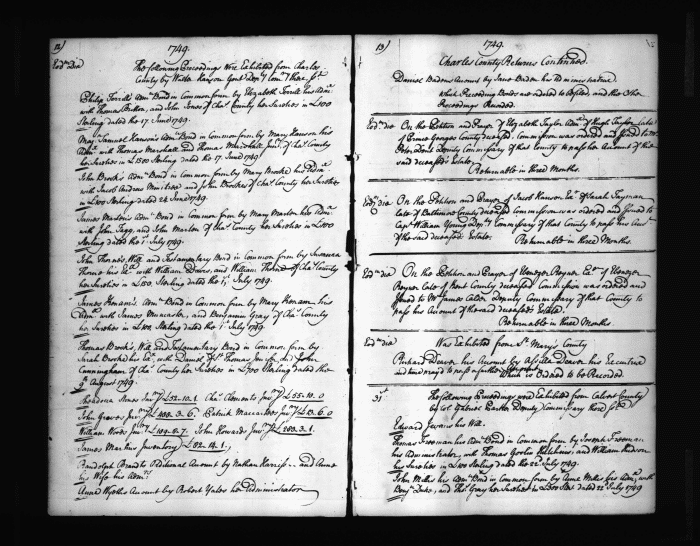 12)
1749.
Eod.m Die
The following Proceedings Were Exhibited from Charles
County by Walter Hanson Gent Dep.ty Com.ry there. Sst
Philip Ferrells Adm.n Bond in Common form by Elizabeth Ferrell his Adm.x
with Thomas and John Jones of Cha.s County her Sureties in £100
Sterling dated the 17. June 1749.
May. Samuel Hanson's Adm.n Bond in Common form by Mary Hanson his
Adm.x with Thomas Marshall and Thomas Marshall Jun.r of Cha.s County
her Sureties in £1500 Sterling dated the 17. June 1749
John Brook's Adm.n Bond in Common form by Mary Brooke his Adm.x
with Jacob Andrew Minitree and John Brookes of Cha.s County her Sureties
in £100 Sterling dated 24 June 1749.
James Marton's Adm.n Bond in Common form by Mary Marton his Adm.x
with John and John Marton of Cha.s County her Sureties in £100
Sterling dated the 1.st July 1749.
John Thorn's Will and Testamentary Bond in Common form by Susanna
Thorn his Ex.x with William Davis, and William of Cha.s County
her Sureties in £150. Sterling dated the 1.st July 1749.
James Adm.n Bond in Common form by Mary his
Adm.x with James Muncaster, and Benjamin Gray of Cha.s County
her Sureties in £100. Sterling dated the 1.st July 1749
Thomas Brook's, Will and Testamentary Bond in Common form by
Sarah Brooke his Ex.x with Daniel of S.t Thomas Jenifer and John
Cunningham of Cha.s County her Sureties in £700 Sterling dated the
9.th August 1749.
Jones Inv.y £52.10.1. Cha.s Clements Inv.y £55.10.0
John Graves Inv.y £ .3.6. Patrick Inv.y £13.6.0
William Woods Inv.y £109.5.7. John Howards Inv.y £203.3.1.
James Martins Inventory £92.14.1.
Additional Account by Nathan Harris and Anne
his Wife his Adm.x
Anne Account by Robert Yates her Administrator
13)
1749.
Charles County Returns Continued.
Daniel Account by Jane his Administratrix.
Which Proceedings Bonds are ordered to be filed, and the other
Proceedings Recorded.
Eod.m die
On the Petition and Prayer of Elizabeth Taylor Adm.x of Hugh Taylor late
of Prince Georges County deceased Commission was ordered and issued to M.r
Peter Dent Deputy Commissary of that County to pass her Account of the
said deceased's Estate.
Returnable in three Months.
Eod.m die
On the Petition and Prayer of Jacob Hanson Ex.r of Sarah
late of Baltimore County deceased Commission was ordered and issued to
Cap.t William Young Dep.ty Commissary of that County to pass his Acco.t
of the said deceaseds Estate.
Returnable in three Months.
Eod.m die
On the Petition and Prayer of Ebenezer Reyner Ex.r of Ebenezer
Reyner late of Kent County deceased Commission was ordered and
Issued to M.r James Calder Deputy Commissary of that County to
pass his Account of the said deceased's Estate.
Returnable in three Months.
Eod.m die
Was Exhibited from S.t Mary's County
Richard Account by his Executrix
Which is Ordered to be Recorded.
31.st
The following Proceedings were Exhibited from Calvert County
by Col.o Gabriel Parker Deputy Commissary there Sst
Edward his Will.
Thomas Freeman his Adm.n Bond in Common form by Freeman
his Administrator, with Thomas and William
his Sureties in £100 Sterling dated the 22.d July 1749.
John Mills his Adm.n Bond in Common form by Anne Mills his Adm.x with
Benj.a and Tho.s Gray her Sureties in £300 Ster. dated 22.d July 1749